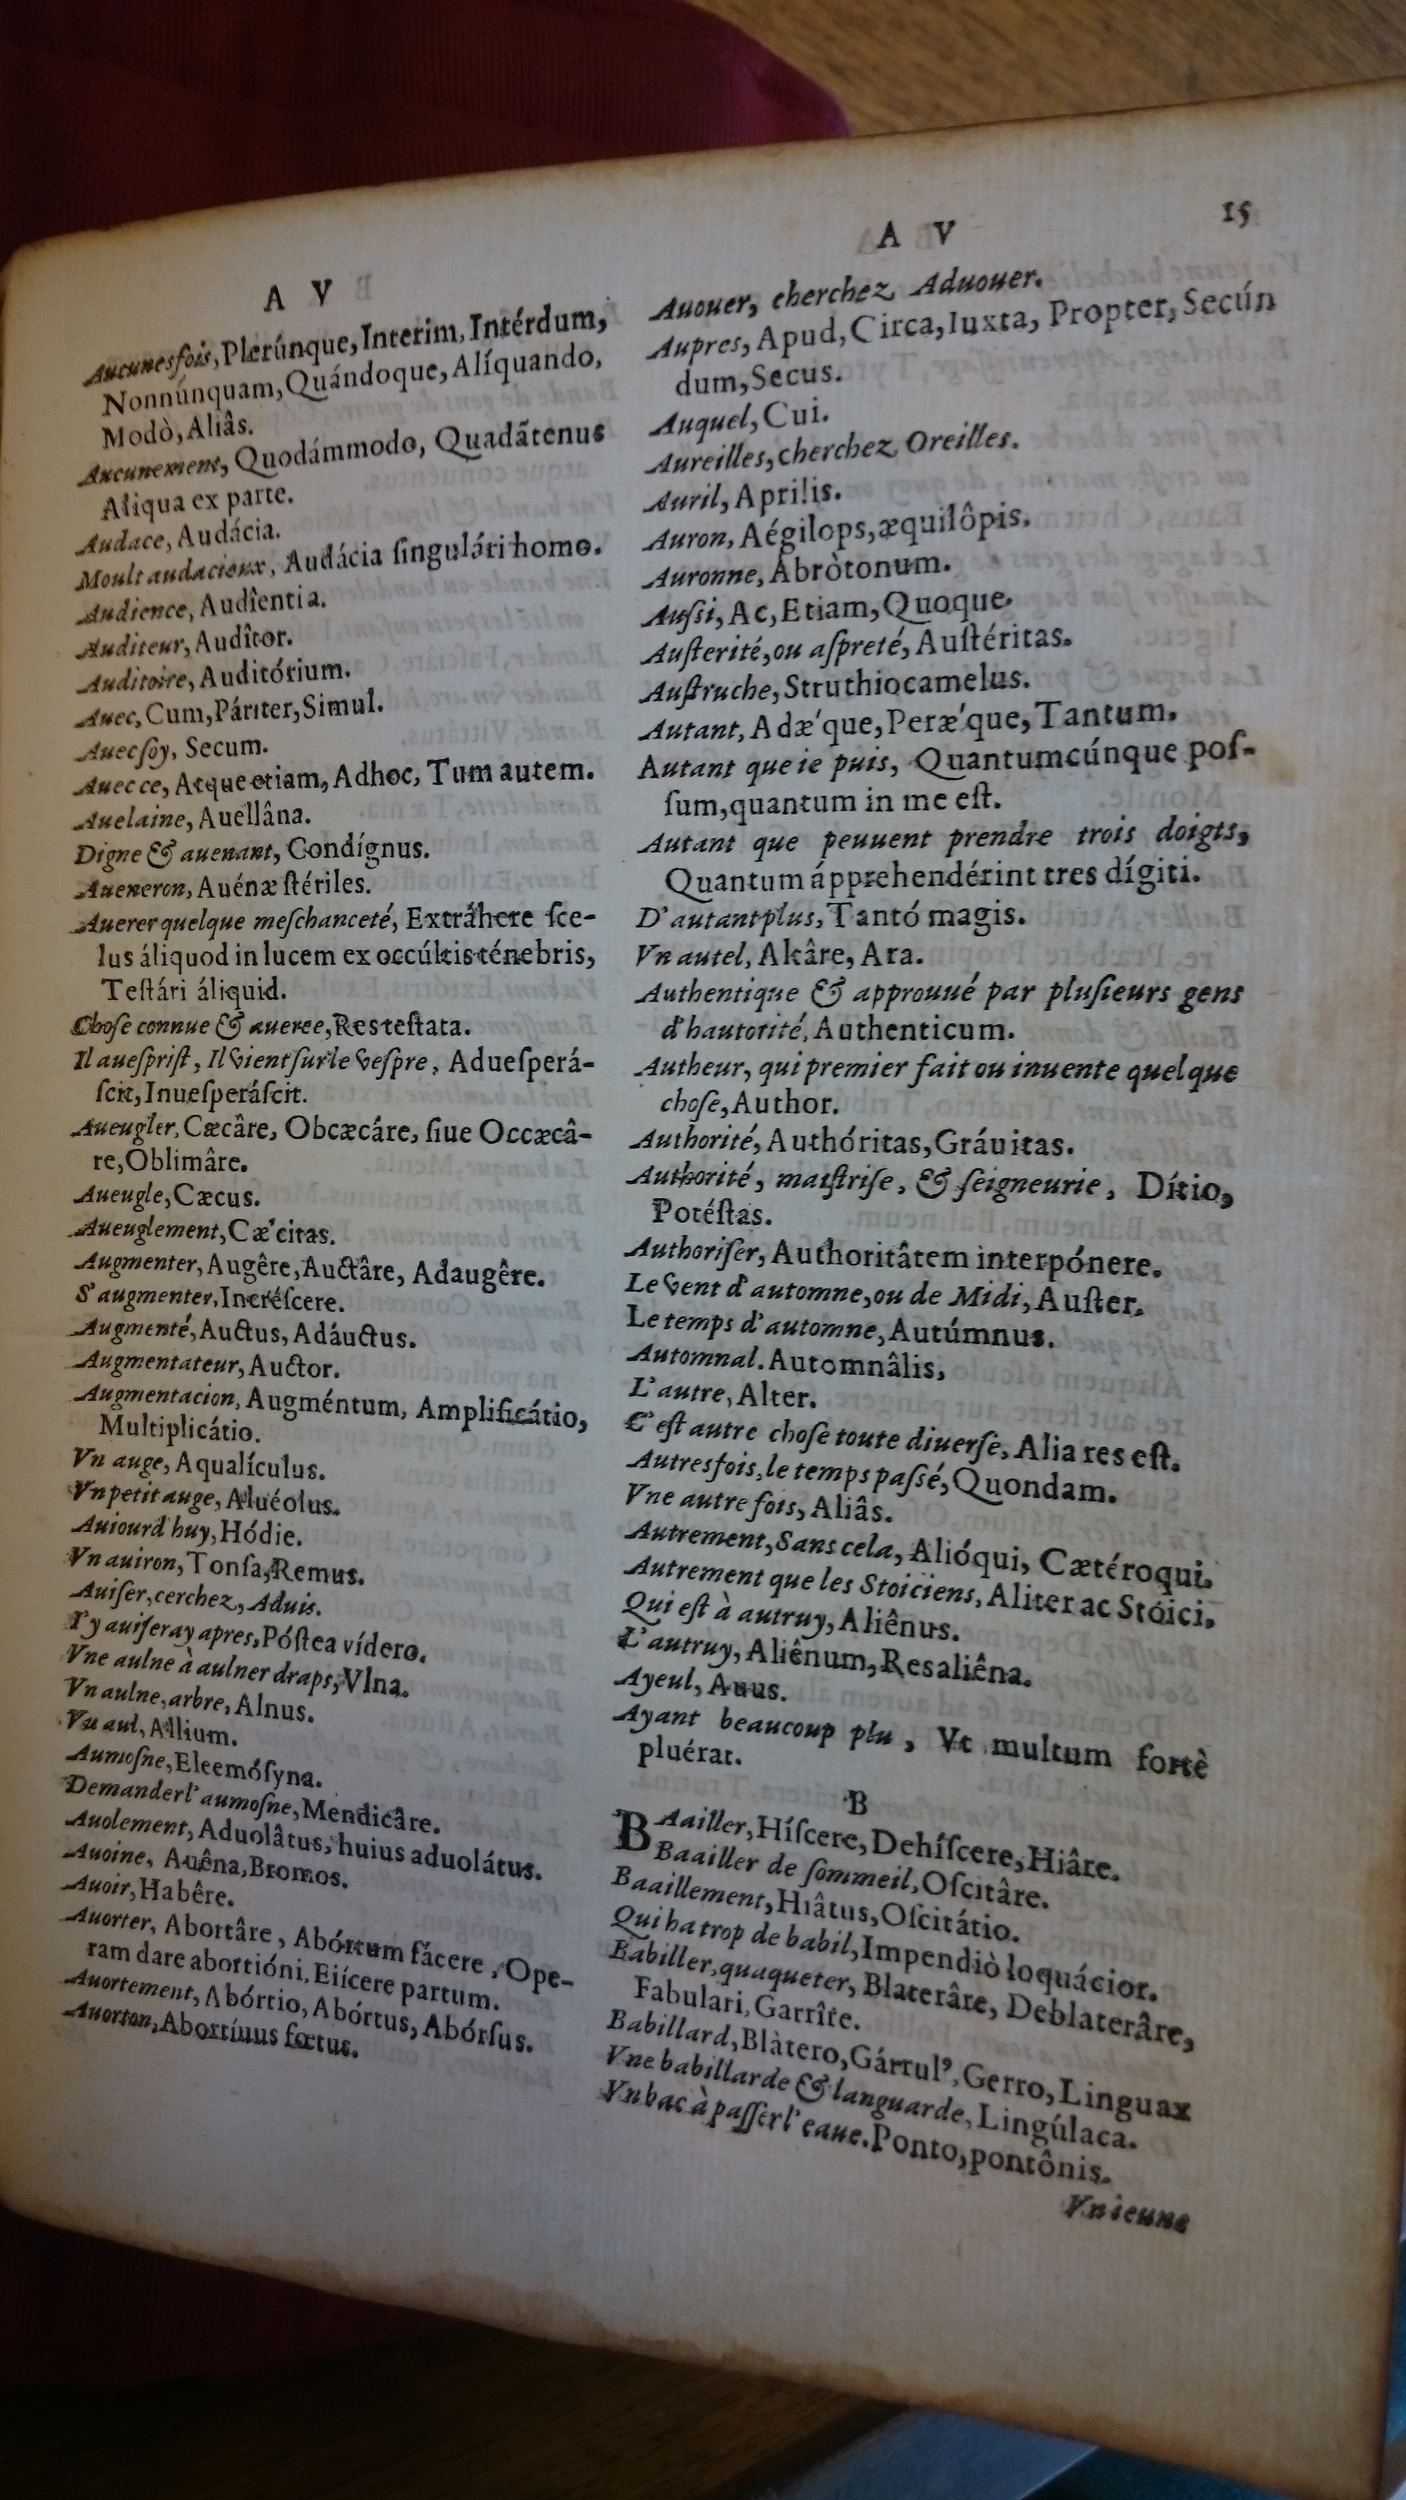 A V
Aucunesfois, Plerúnque, Interim, Intérdum,
Nonnúnquam, Quándoque, Alíquando,
Modò, Aliâs.
Aucunement, Quodámmodo, Quadãtenus
Aliqua ex parte.
Audace, Audácia.
Moult audacieux, Audácia ſingulári homo.
Audience, Audîentia.
Auditeur, Audîtor.
Auditoire, Auditórium.
Auec, Cum, Páriter, Simul.
Auec ſoy, Secum.
Auec ce, Atque etiam, Adhoc, Tum autem.
Auelaine, Auellâna.
Digne & auenant, Condígnus.
Aueneron, Auénæ ſtériles.
Auerer quelque meſchanceté, Extráhere ſce-
lus áliquod in lucem ex occúltis ténebris,
Teſtári áliquid.
Choſe connue & aueree, Res teſtata.
Il aueſpriſt, Il vient ſur le veſpre, Adueſperá-
ſcit, Inueſperáſcit.
Aueugler, Cæcâre, Obcæcáre, ſiue Occæcâ-
re, Oblimâre.
Aueugle, Cæcus.
Aueuglement, Cæ'citas.
Augmenter, Augêre, Auctâre, Adaugêre.
S'augmenter, Increſcere.
Augmenté, Auctus, Adáuctus.
Augmentateur, Auctor.
Augmentacion, Augméntum, Amplificátio,
Multiplicátio.
Vn auge, Aqualículus.
Vn petit auge, Aluéolus.
Auiourd'huy, Hódie.
Vn auiron, Tonſa, Remus.
Auiſer, cerchez, Aduis.
I'y auiſeray apres, Póſtea vídero.
Vne aulne à aulner draps, Vlna.
Vn aulne, arbre, Alnus.
Vn aul, Allium.
Aumoſne, Eleemóſyna.
Demander l'aumoſne, Mendicâre.
Auolement, Aduolâtus, huius aduolátus.
Auoine, Auêna, Bromos.
Auoir, Habêre.
Auorter, Abortâre, Abórtum fácere, Ope-
ram dare abortióni, Eiícere partum.
Auortement, Abórtio, Abórtus, Abórſus.
Auorton, Abortíuus fœtus.
A V
15
Auouer, cherchez Aduouer.
Aupres, Apud, Circa, Iuxta, Propter, Secún
dum, Secus.
Auquel, Cui.
Aureilles, cherchez Oreilles.
Auril, Aprilis.
Auron, Aégilops, æquilôpis.
Auronne, Abròtonum.
Auſsi, Ac, Etiam, Quoque.
Auſterité, ou aſpreté, Auſtéritas.
Auſtruche, Struthiocamelus.
Autant, Adæ'que, Peræ'que, Tantum.
Autant que ie puis, Quantumcúnque poſ-
ſum, quantum in me eſt.
Autant que peuuent prendre trois doigts,
Quantum ápprehendérint tres dígiti.
D'autant plus, Tantó magis.
Vn autel, Akâre, Ara.
Authentique & approuué par pluſieurs gens
d'hautorité, Authenticum.
Autheur, qui premier fait ou inuente quelque
choſe, Author.
Authorité, Authóritas, Gráuitas.
Authorité, maiſtriſe, & ſeigneurie, Dítio,
Potéſtas.
Authoriſer, Authoritâtem interpónere.
Le vent d'automne, ou de Midi, Auſter.
Le temps d'automne, Autúmnus.
Automnal. Automnâlis,
L'autre, Alter.
C'eſt autre choſe toute diuerſe, Alia res eſt.
Autresfois, le temps paſſé, Quondam.
Vne autre fois, Aliâs.
Autrement, Sans cela, Alióqui, Cætéroqui.
Autrement que les Stoiciens, Aliter ac Stóici.
Qui eſt à autruy, Aliênus.
L'autruy, Aliênum, Res aliêna.
Ayeul, Auus.
Ayant beaucoup plu, Vt multum fortè
pluérat.
B
BAailler, Híſcere, Dehíſcere, Hiâre.
Baailler de ſommeil, Oſcitâre.
Baaillement, Hiâtus, Oſcitátio.
Qui ha trop de babil, Impendiò loquácior.
Babiller, quaqueter, Blaterâre, Deblaterâre,
Fabulari, Garrîre.
Babillard, Blàtero, Gárrulꝰ, Gerro, Linguax
Vne babillarde & languarde, Lingúlaca.
Vn bac à paſſer l'eaue. Ponto, pontônis.
Vn ieune